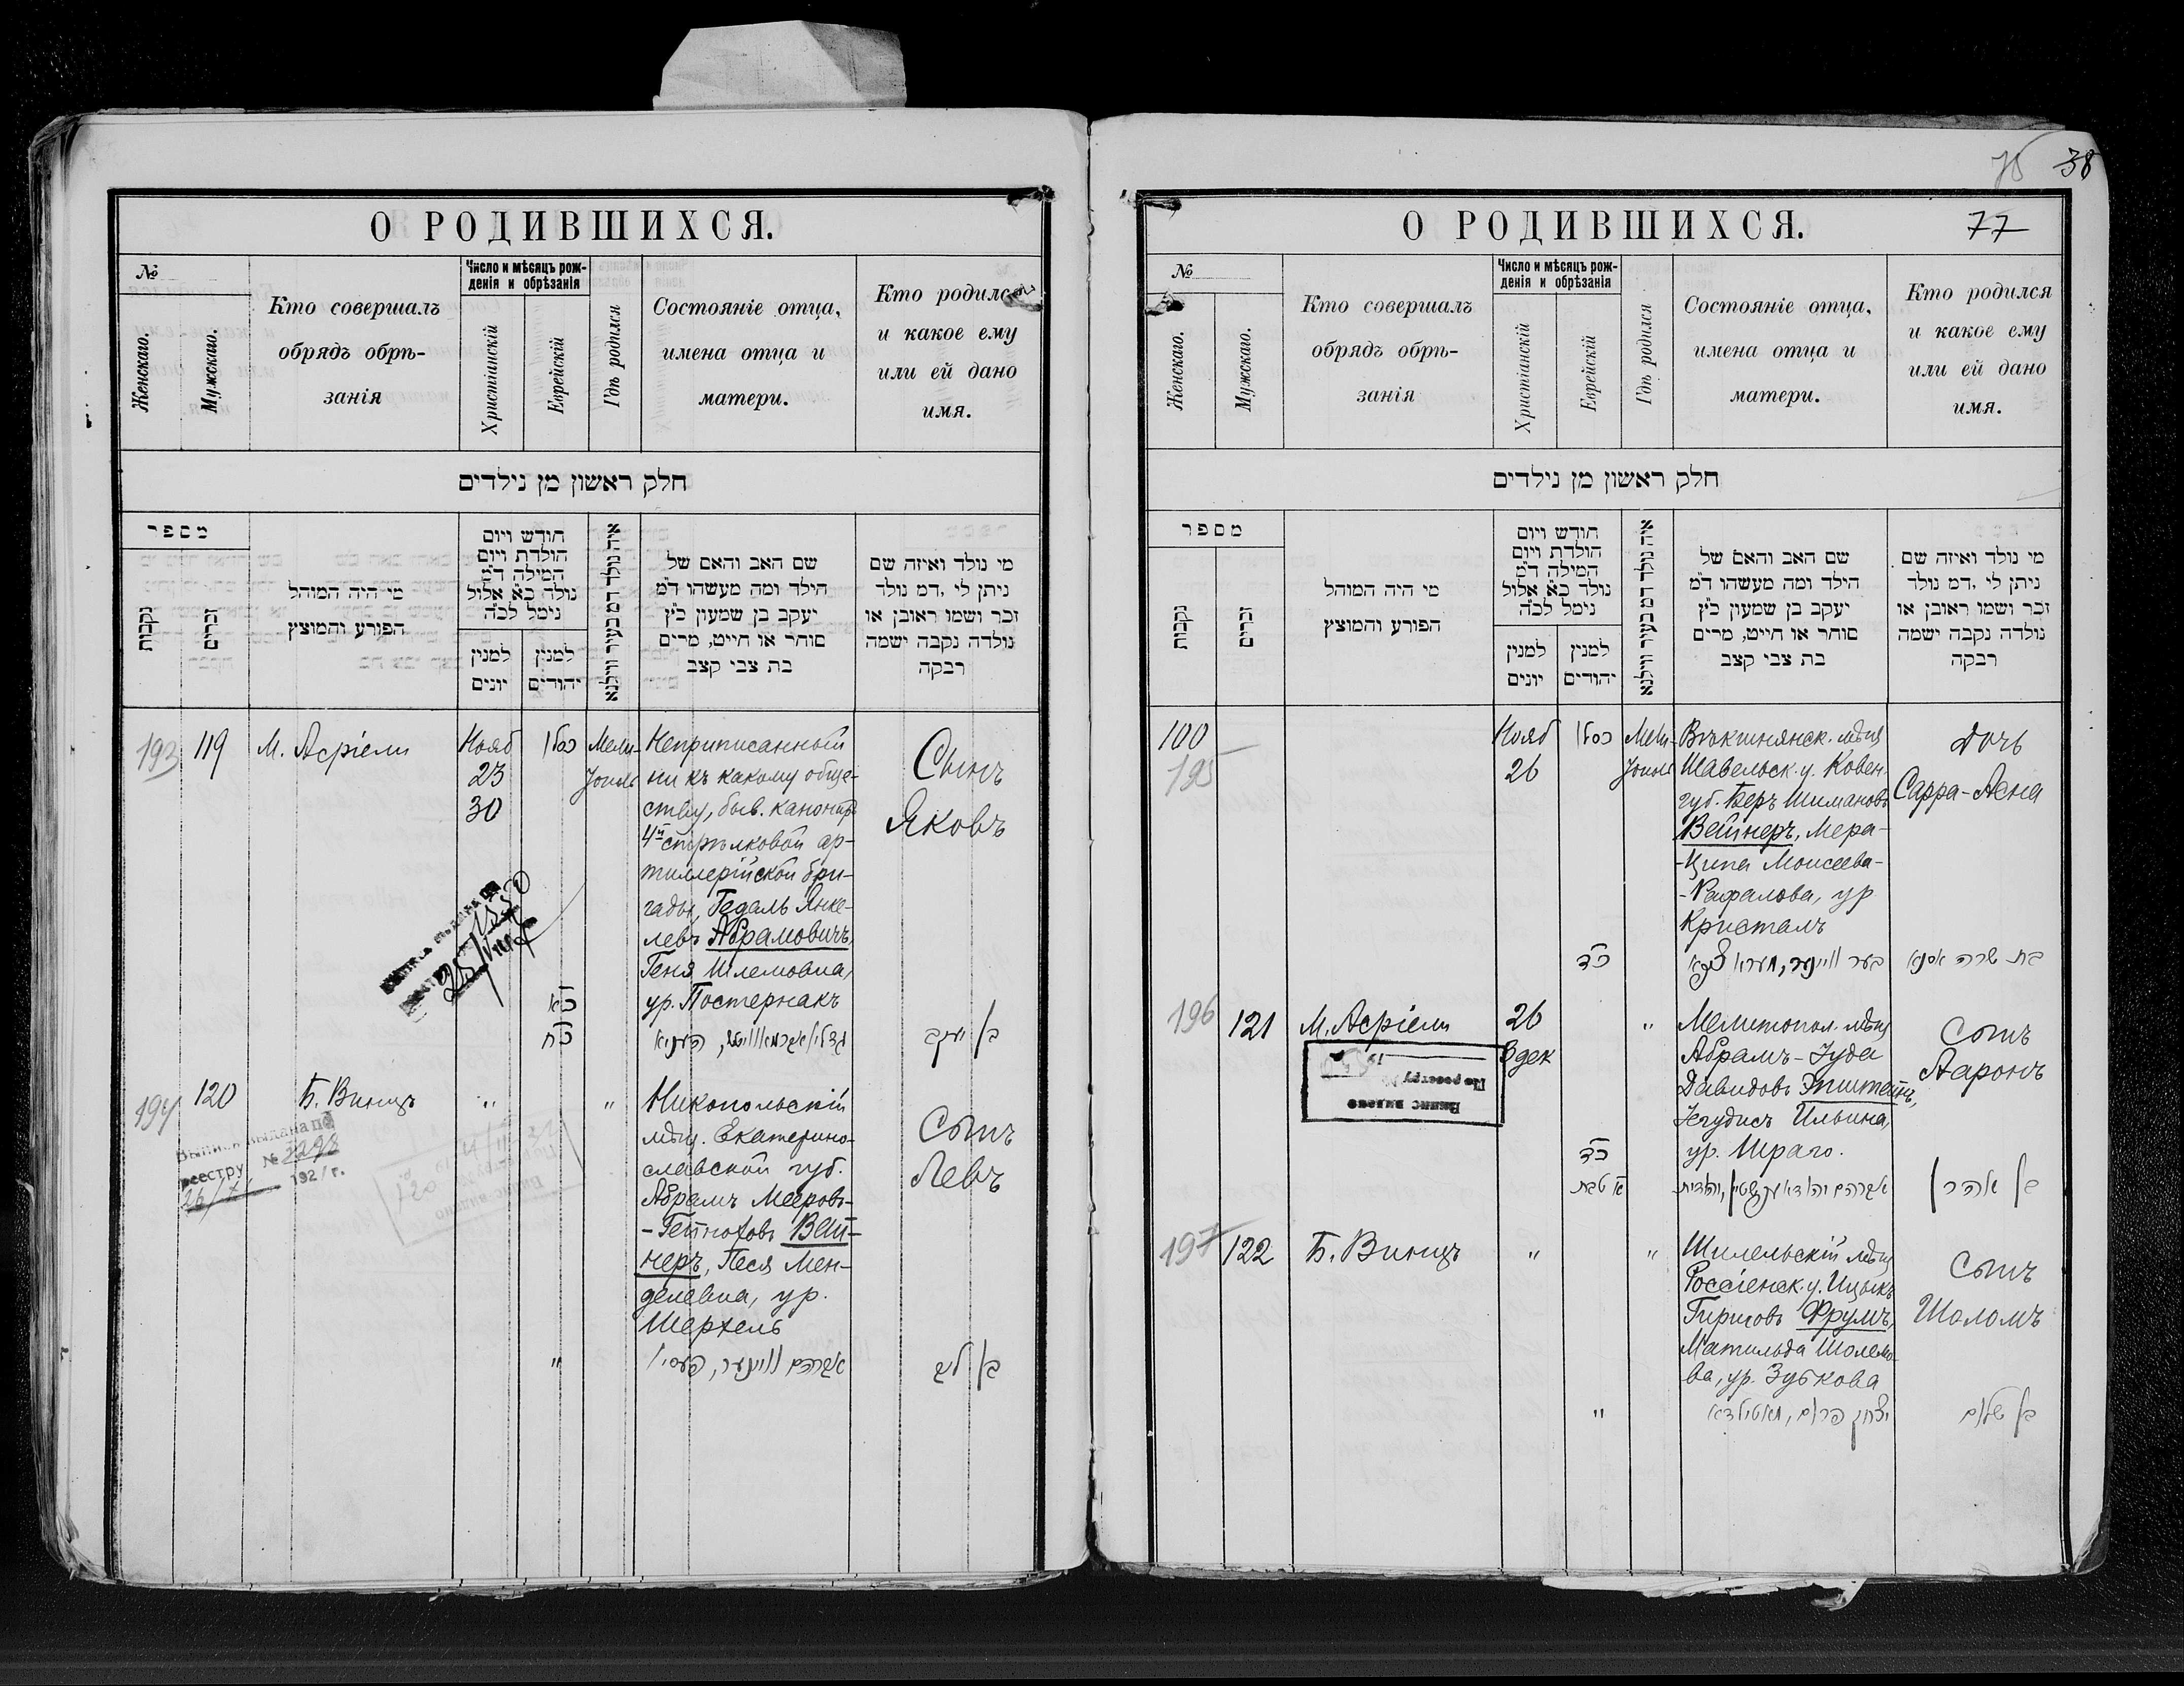 О РОДИВШИХСЯ.
№
Женскаго.
Мужскаго.
Кто совершалъ
обрядъ обрѣ-
занія
Число и мѣсяцъ рож-
денія и обрѣзанія
Христіанскій
Еврейскій
Гдѣ родился
Состояніе отца,
имена отца и
матери.
Кто родился
и какое ему
или ей дано
имя.
חלק ראשון מן נילדים
מספר
נקבות
זכרים
מי היה המוהל
הפורע והמוצץ
חודש ויום
הולדת ויום
המילה ד״מ
נולד כ״א אלול
נימל לכ״ה
למנין
יונים
למנין
יהודים
איה נולד דמ בעיר ווילנא
שם האב והאם של
הילד ומה מעשהו ד״מ
יעקב בן שמעון כ״ץ
סוחר או חייט, מרים
בת צבי קצב
מי נולד ואיזה שם
ניתן לי ,דמ נולד
זכר ושמו ראובן או
נולדה נקבה ישמה
רבקה
193
119
М. Асріели
Нояб
23
30
כסלו
כא
כח
Мели-
тополь
Неприписанный
ни къ какому обще-
ству, быв. канониръ
4й стрѣлковой ар-
тиллерійской бри-
гады, Гедаль Янке-
левъ Абрамовичъ,
Геня Шлемовна,
ур. Постернакъ
Сынъ
Яковъ
בן יעקב
194
120
Б. Винцъ
"
"
Никопольскій
мѣщ. Екатерино-
славской губ.
Абрамъ Мееровъ-
-Гетноховъ Вей-
неръ, Песя Мен-
делевна, ур.
Шерхель
אברהם ווינער, פעסי
"
Сынъ
Левъ
בן ליב
Выписка выдана по
реестру №
192 г.
75 38
О РОДИВШИХСЯ.
77
№
Женскаго.
Мужскаго.
Кто совершалъ
обрядъ обрѣ-
занія
Число и мѣсяцъ рож-
денія и обрѣзанія
Христіанскій
Еврейскій
Гдѣ родился
Состояніе отца,
имена отца и
матери.
Кто родился
и какое ему
или ей дано
имя.
חלק ראשון מן נילדים
מספר
נקבות
זכרים
מי היה המוהל
הפורע והמוצץ
חודש ויום
הולדת ויום
המילה ד״מ
נולד כ״א אלול
נימל לכ״ה
למנין
יונים
למנין
יהודים
איה נולד דמ בעיר ווילנא
שם האב והאם של
הילד ומה מעשהו ד״מ
יעקב בן שמעון כ״ץ
סוחר או חייט, מרים
בת צבי קצב
מי נולד ואיזה שם
ניתן לי ,דמ נולד
זכר ושמו ראובן או
נולדה נקבה ישמה
רבקה
100
195
Нояб
26
כסלו
כד
Мели-
тополь
Вѣкшнянск. мѣщ
Шавельск. у. Ковен.
губ. Беръ Шимановъ
Вейнеръ, Мера-
-Ципа Моисеева-
-Рафалова, ур
Кристалъ
Дочь
Сарра-Асна
בת שרה אסנא
196
121
М. Асріели
26
3 дек
כד
א טבת
"
Мелитопол. мѣщ
Абрамъ-Іуда
Давидовъ Эпштейнъ,
Іегудисъ Ильина,
ур. Шраго.
אברהם יהודא עפשטיין, יהודית
Сынъ
Ааронъ
בן אהרן
197
122
Б. Винцъ
"
"
"
Шилельскій мѣщ
Россіенск. у. Ицыкъ
Гиршовъ Фрумъ,
Матильда Шолемо-
ва, ур. Зубкова
יצחק פרום, מאטילדא
Сынъ
Шоломъ
בן שלום